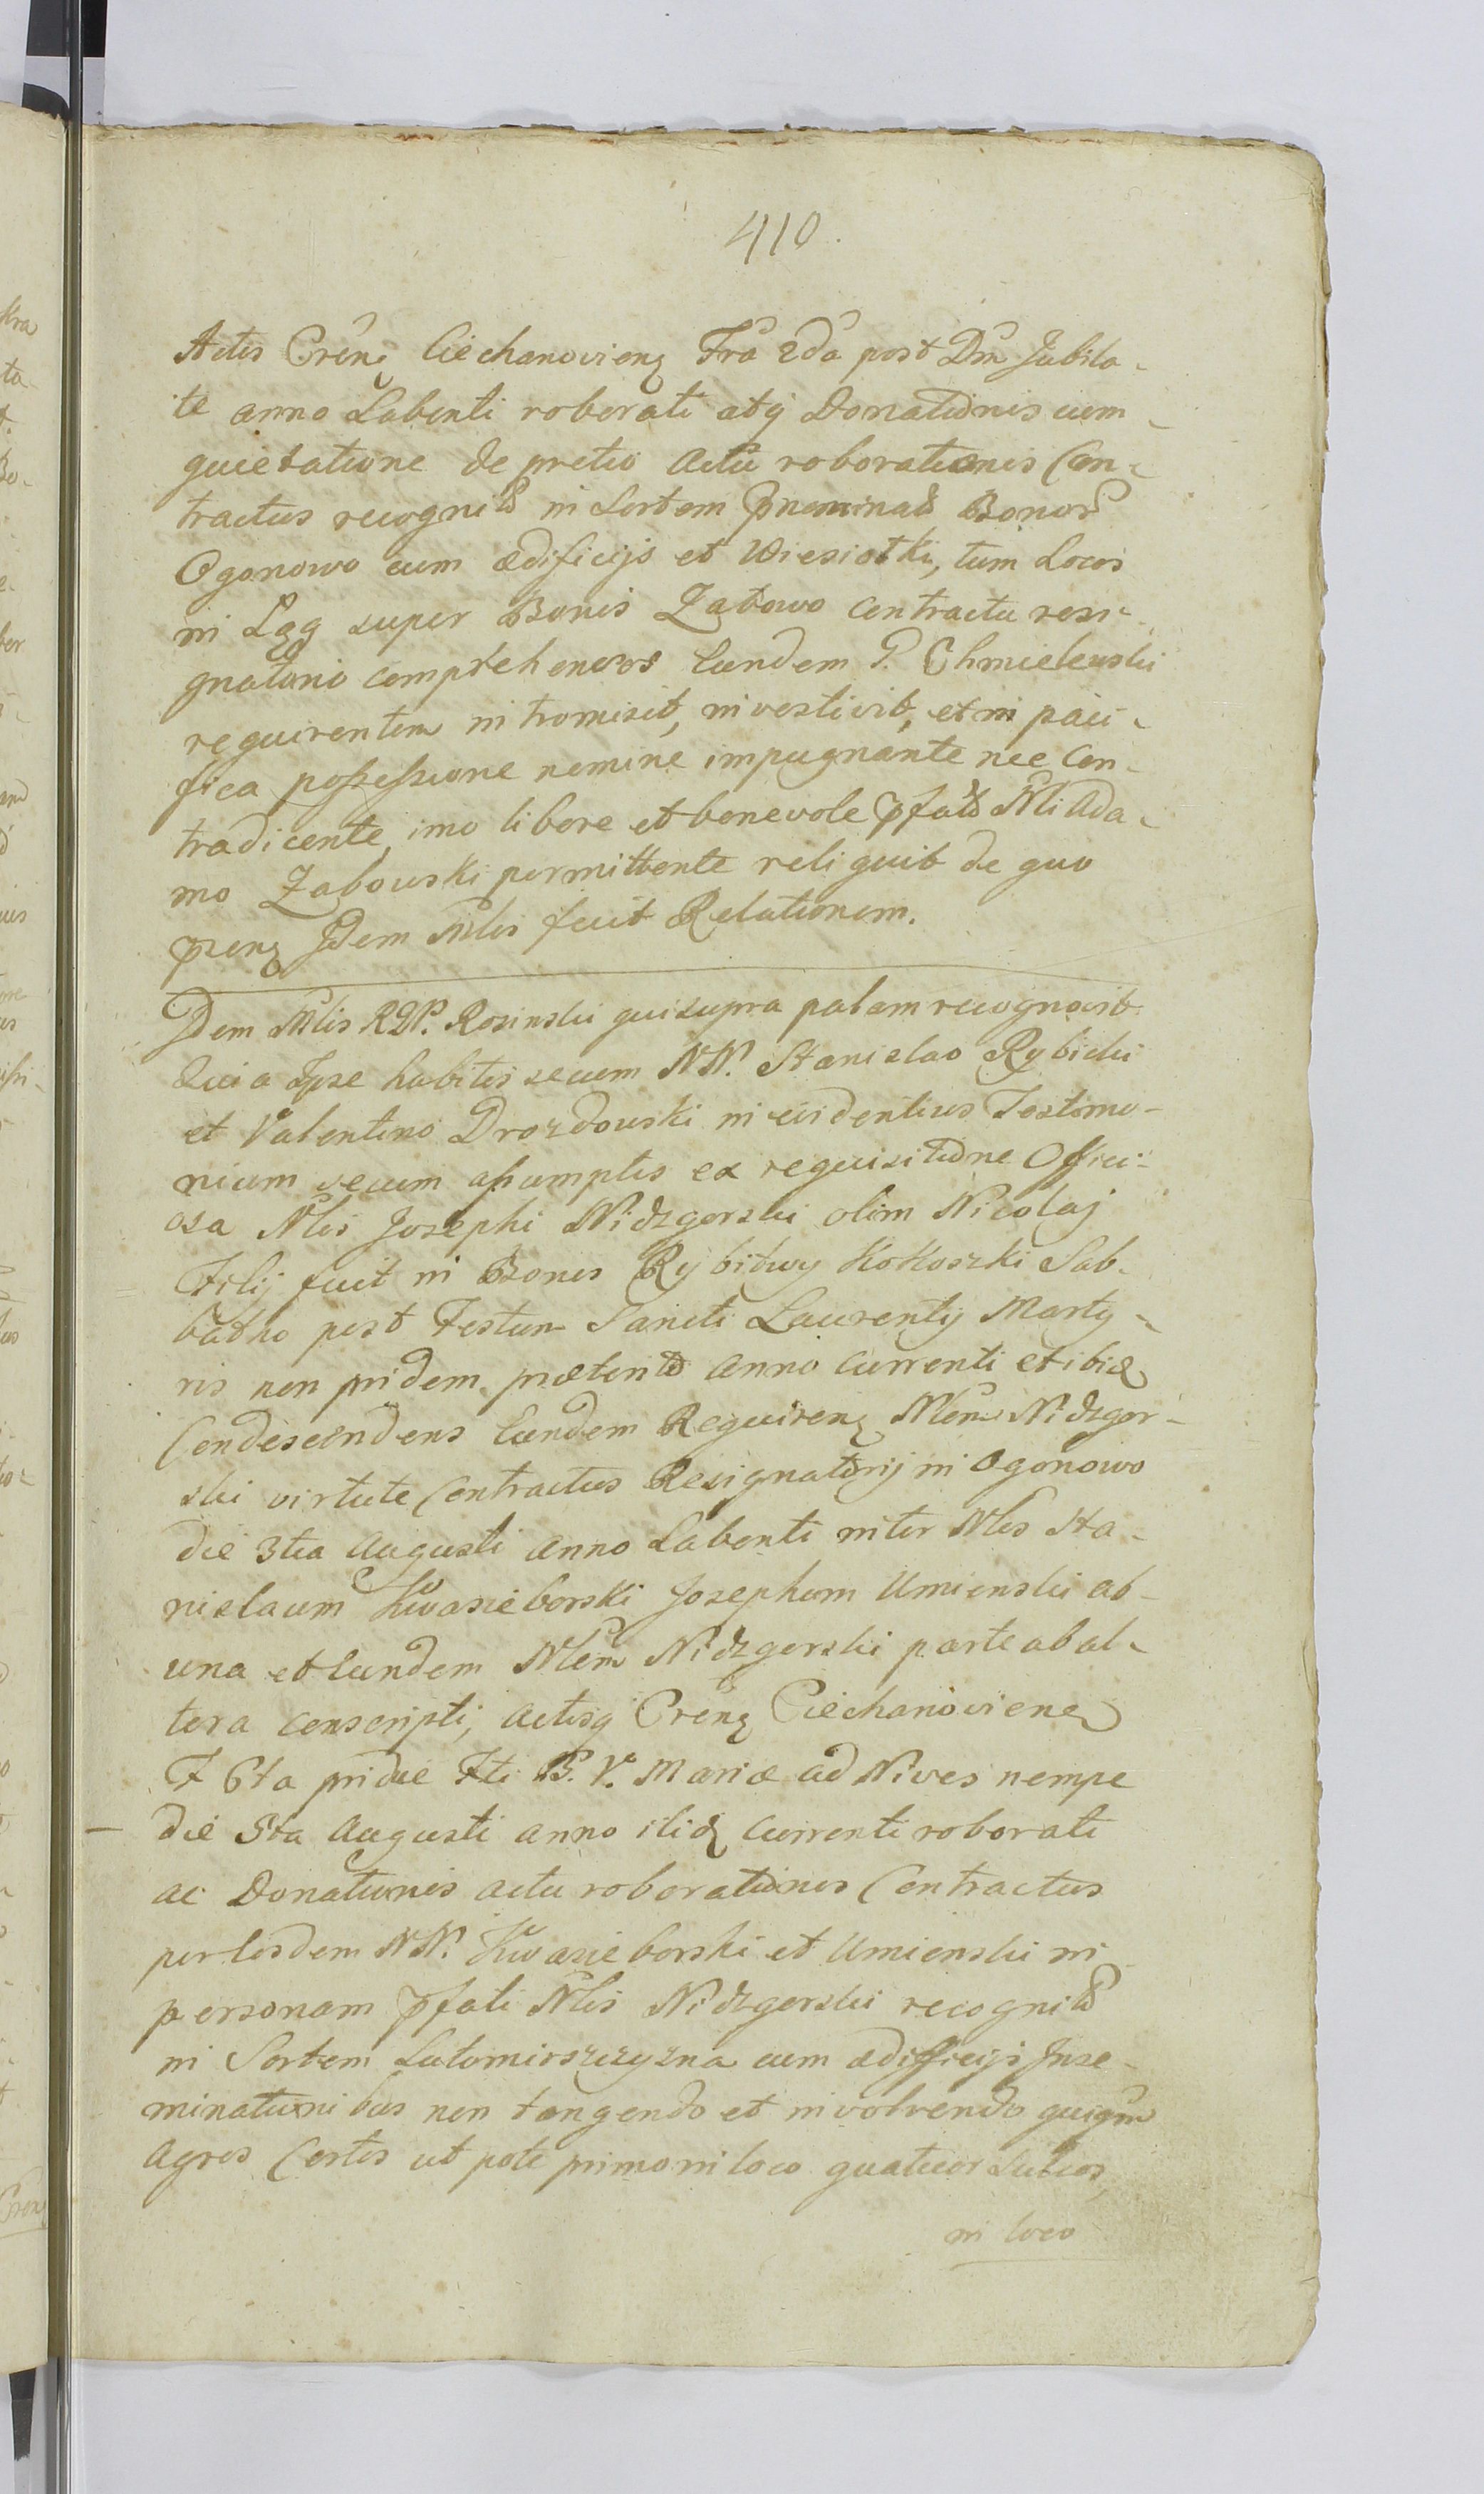 410.
Actis Crēnē Ciechanovienē Fra 2da post Dm̄ Jubila-
te anno Labenti roborati atq̄ Donationis cum
quietatione de pretio actu roborationis Con-
tractus recognito in Sortem pnominato Bonorō
Ogonowo cum ædificijs et Wiesiołki, tum Locos
in Łąg super Bonis Żabowo contractu resi-
gnatorio comprehensos Eundem P. Chmielewski
requirentem intromisit, investivit, et in paci-
fica possessione nemine impugnante nec con-
tradicente, imo libere et benevole pfato Nli Ada-
mo Żabowski permittente reliquit de quo
psenē Idem Mlis fecit Relationem.
Idem Mlis RGP. Rosinski qui supra palam recognovit
Quia Ipse habitis secum NN. Stanislao Rybicki
et Valentino Drozdowski in evidentius Testimo-
nium secum assumptis ex requisitione Offici-
osa Nlis Josephi Nidzgorski olim Nicolaj
Filij fuit in Bonis Rybitwy Kokoszki Sab-
batho post Festum Sancti Laurentij Marty-
ris non pridem præterito anno currenti et ibidē
Condescendens Eundem Requirenē Nlem Nidzgor-
ski virtute Contractus Resignatorij in Ogonowo
die 3tia Augusti anno Labenti inter Nles Sta-
nislaum Kwasieborski Josephum Umienski ab
una et Eundem Nlem Nidzgorski parte ab al-
tera conscripti, actisq̄ Crenē Ciechanovienē
F 6ta pridie Fti B. V. Mariæ ad Nives nempe
die 5ta Augusti anno itidē currenti roborati
ac Donationis actu roborationis Contractus
per Eosdem NN. Kwasieborski et Umienski in
personam pfati Nlis Nidzgorski recognito
in Sortem Lutomirszczyzna cum ædifficijs Inse-
minationibus non tangendo et involvendo quiqm
agros Certos ut pote primo in loco quatuor Sulcos,
in loco